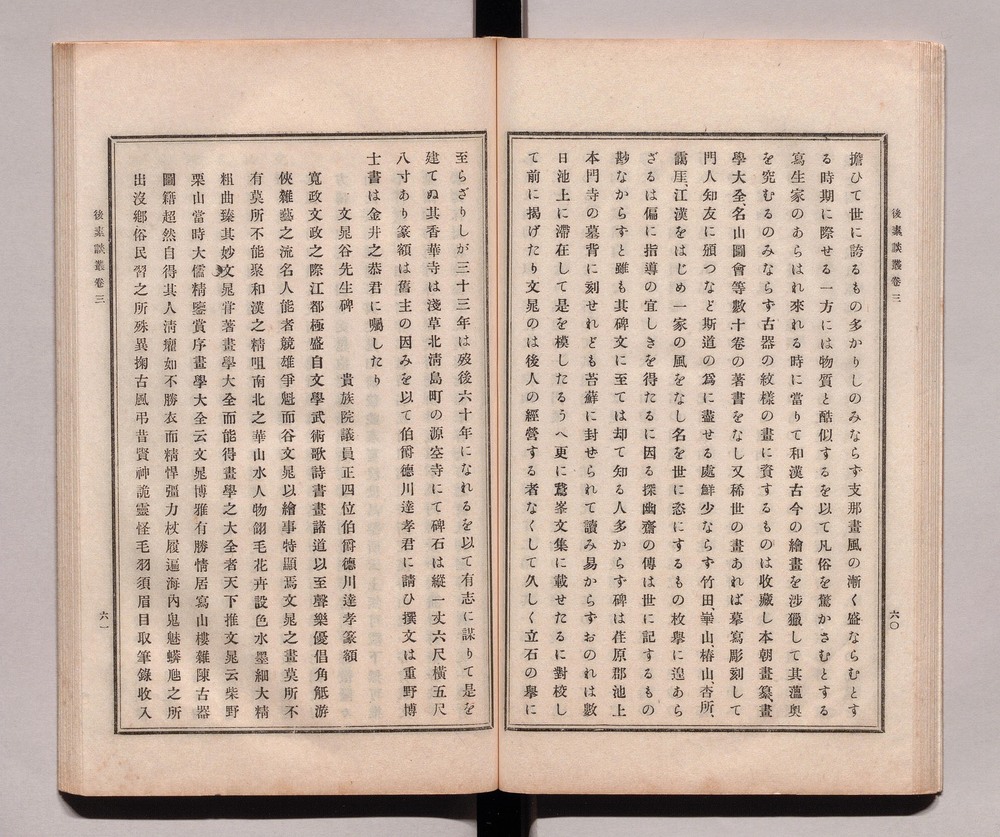 後素談叢卷三
六〇
擔ひて世に誇るもの多かりしのみならす支那畫風の漸く盛ならむとす
る時期に際せる一方には物質と酷似するを以て凡俗を驚かさむとする
寫生家のあらはれ來れる時に當りて和漢古今の繪畫を涉獵して其薀奧
を究むるのみならす古器の紋樣の畫に資するものは收藏し本朝畫纂、畫
學大全、名山圖會等數十卷の著書をなし又稀世の畫あれば摹寫彫刻して
門人知友に頒つなど斯道の爲に盡せる處鮮少ならす竹田、崋山椿山、杏所、
靄厓、江漢をはじめ一家の風をなし名を世に恣にするもの枚擧に遑あら
ざるは偏に指導の宜しきを得たるに因る探幽齋の傳は世に記するもの
尠なからすと雖も其碑文に至ては却て知る人多からす碑は荏原郡池上
本門寺の墓背に刻せれども苔蘇に封せられて讀み易からすおのれは數
日池上に滯在して是を模したるうへ更に鵞峯文集に載せたるに對校し
て前に揭げたり文晁のは後人の經營する者なくして久しく立石の擧に
至らざりしが三十三年は歿後六十年になれるを以て有志に謀りて是を
建てぬ其香華寺は淺草北淸島町の源空寺にて碑石は縱一丈六尺橫五尺
八寸あり篆額は舊主の因みを以て伯爵德川達孝君に請ひ撰文は重野博
士書は金井之恭君に囑したり
文晁谷先生碑　　貴族院議員正四位伯爵德川達孝篆額
寬政文政之際江都極盛自文學武術歌詩書畫諸道以至聲樂優倡角觝游
俠雜藝之流名人能者競雄爭魁而谷文晁以繪事特顯焉文晁之畫莫所不
有莫所不能聚和漢之精咀南北之華山水人物翎毛花卉設色水墨細大精
粗曲臻其妙文晁甞著畫學大全而能得畫學之大全者天下推文晁云柴野
栗山當時大儒精鑒賞序畫學大全云文晁博雅有勝情居寫山樓雜陳古器
圖籍超然自得其人淸癯如不勝衣而精悍彊力杖履遍海內鬼魅蟒虺之所
出沒鄉俗民習之所殊異掬古風弔昔賢神詭靈怪毛羽須眉目取筆錄收入
後素談叢卷三
六一